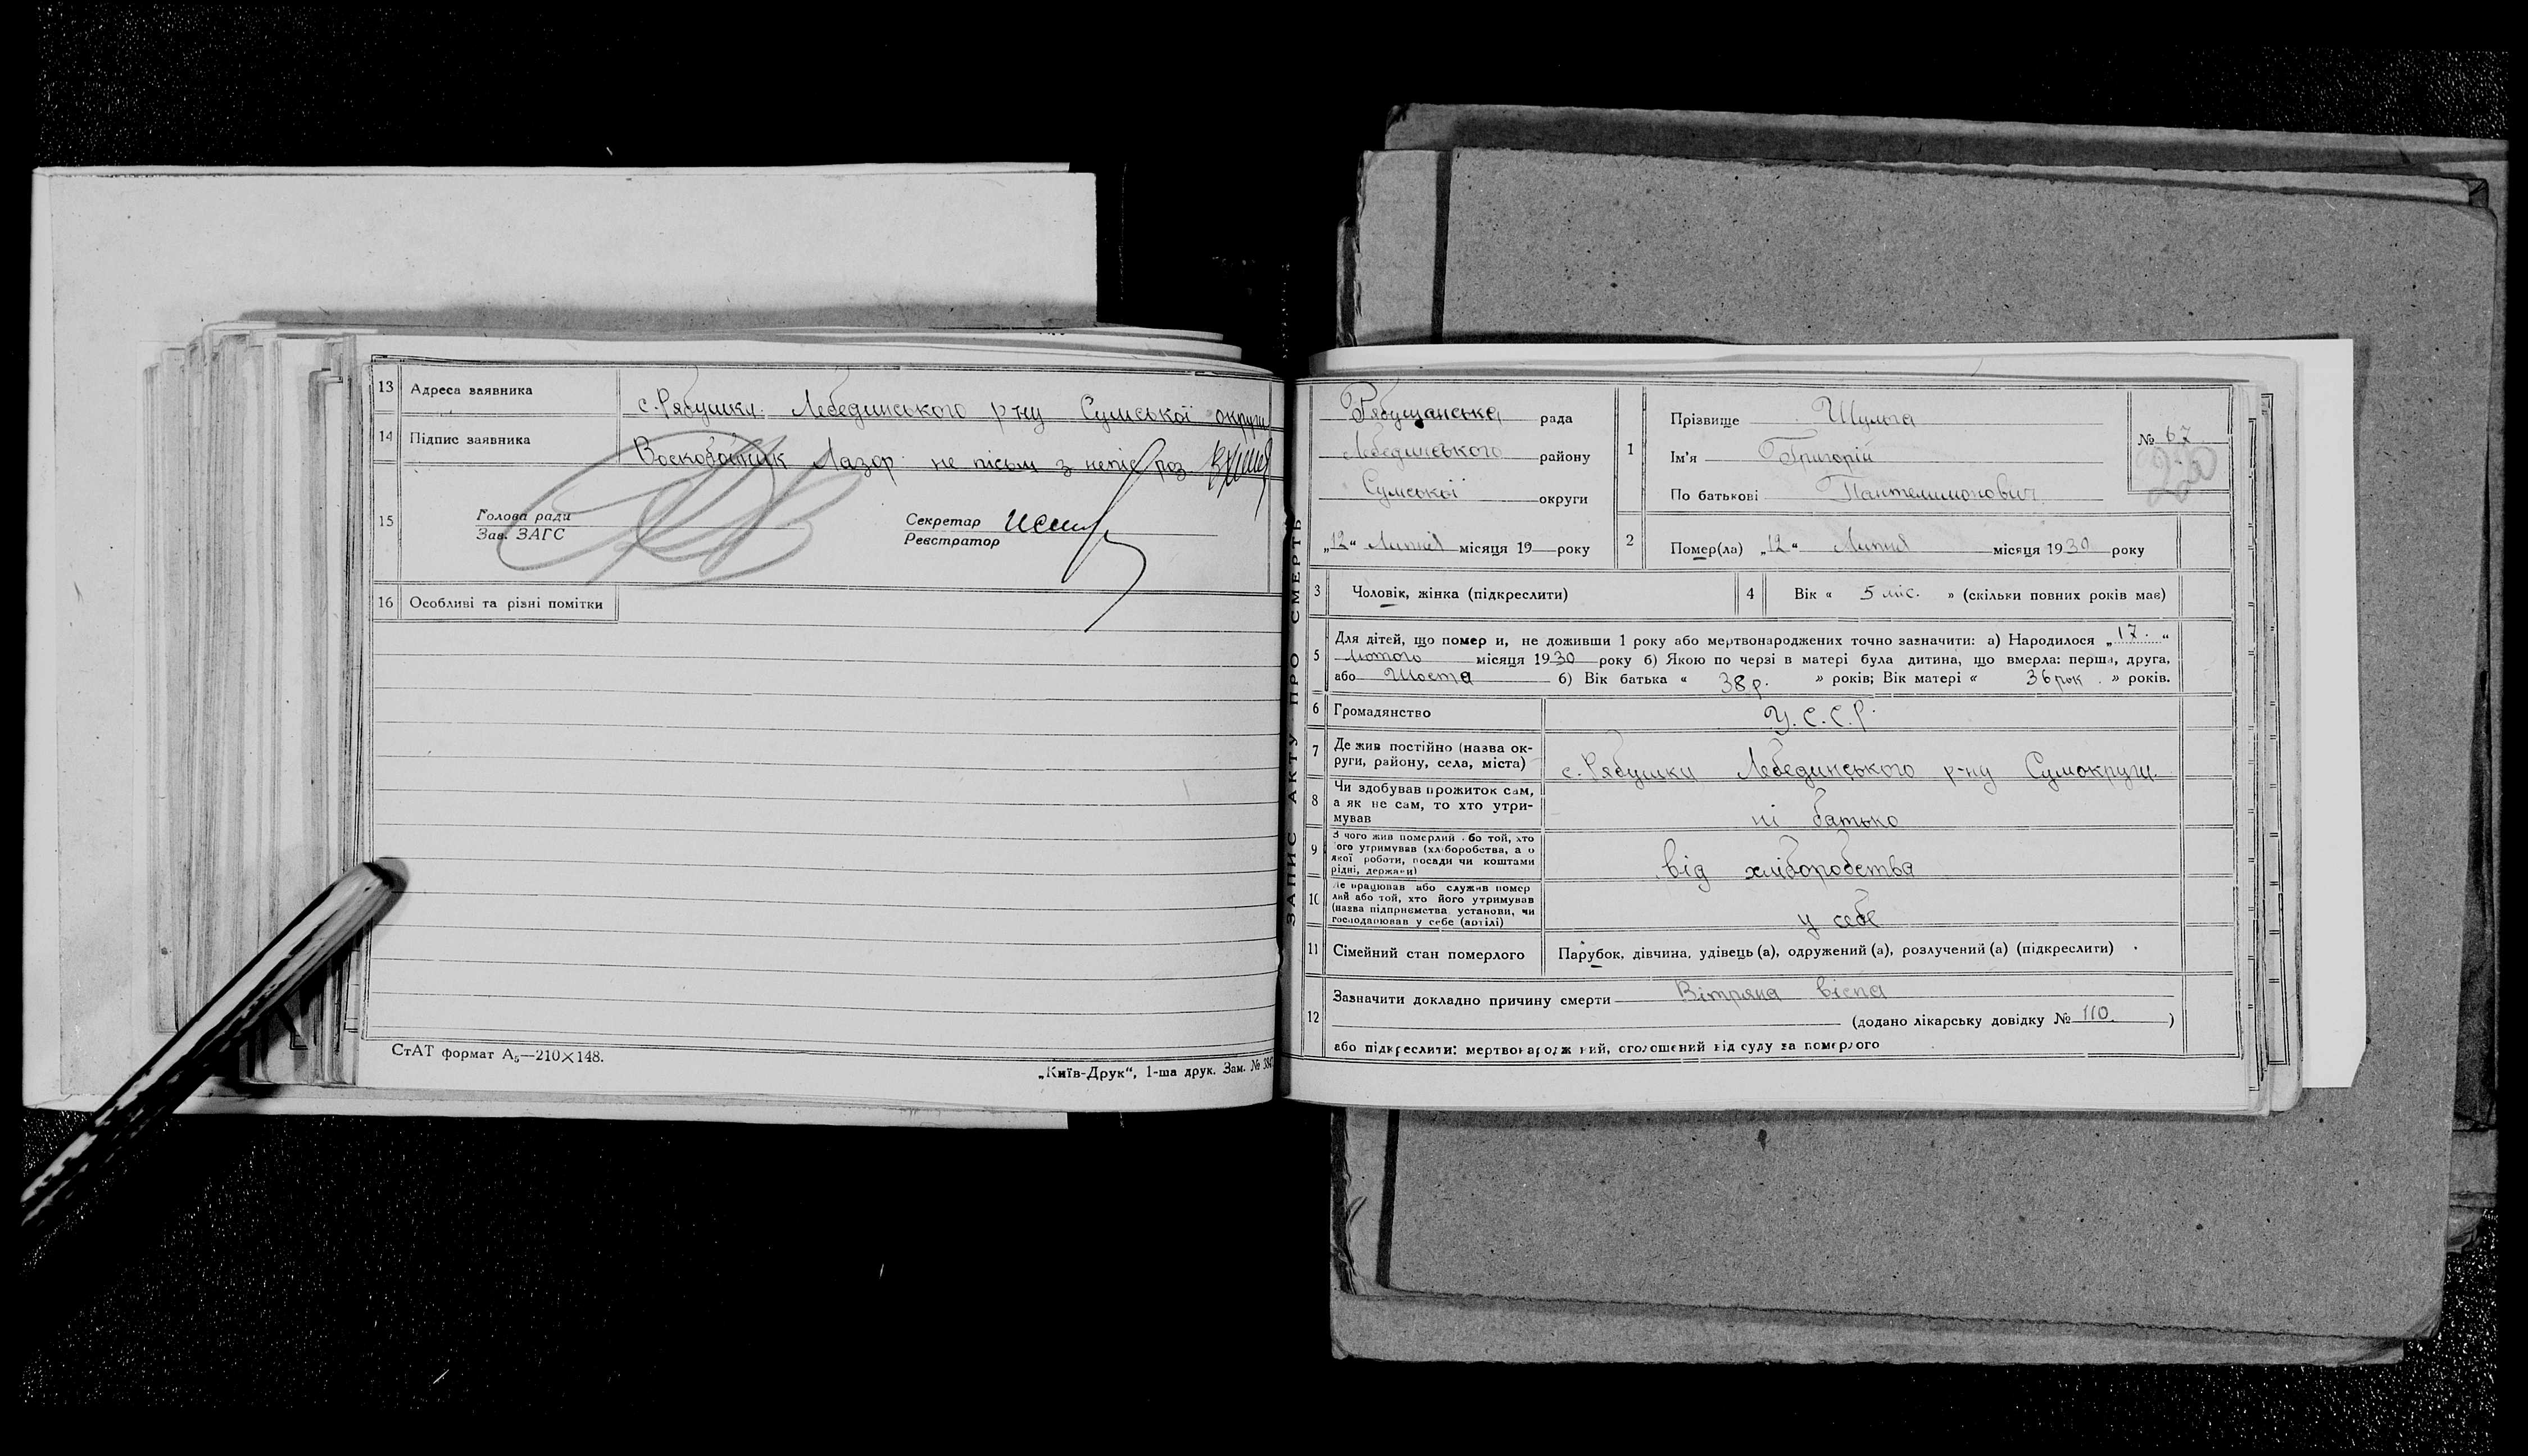 13 Адреса заявника с. Рябушки Лебединського р-ну Сумської округи
14 Підпис заявника Воскобойник Лазор не письм з непіс роз
15 Голова ради Секретар
Зав. ЗАГС Реєстратор
16 Особливі та різні помітки
СтАТ формат А5—210×148.
„Київ-Друк“, 1-ша друк. Зам. №
ЗАПИС АКТУ ПРО СМЕРТЬ
Рябущанська рада
Лебединського району
Сумської округи
„12“ Липня місяця 19 року
1 Прізвище Шульга
Ім'я Григорій
По батькові Пантелимонович
№ 67
220
2 Помер(ла) „12“ Липня місяця 1930 року
3 Чоловік, жінка (підкреслити) 4 Вік « 5 міс. » (скільки повних років має)
5 Для дітей, що помер и, не доживши 1 року або мертвонароджених точно зазначити: а) Народилося „17.“
Лютого місяця 1930 року б) Якою по черзі в матері була дитина, що вмерла: перша, друга,
або Шоста б) Вік батька « 38 р. » років; Вік матері « 36 рок. » років.
6 Громадянство У.С.С.Р.
7 Де жив постійно (назва ок-
руги, району, села, міста) с. Рябушки Лебединського р-ну Сумокруги.
8 Чи здобував прожиток сам,
а як не сам, то хто утри-
мував ні батько
9 З чого жив померлий або той, хто
його утримував (хліборобства, а о
якої роботи, посади чи коштами
рідні, держави) від хліборобства
10 Де працював або служив помер
лий або той, хто його утримував
(назва підприємства установи, чи
господарював у себе (артілі) у себе
11 Сімейний стан померлого Парубок, дівчина, удівець (а), одружений (а), розлучений (а) (підкреслити)
12 Зазначити докладно причину смерти Вітряна віспа
(додано лікарську довідку № 110. )
або підкреслити: мертвонародж ний, оголошений від суду за померлого